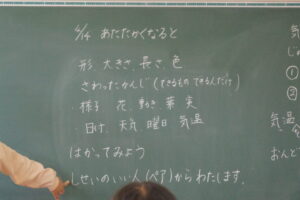 6/14 あたたかくなると
形 大きさ、長さ、色
さわったかんじ(できるもの できる人だけ)
・様子 花、動き 葉 実
・日付、天気 曜日 気温
はかってみよう
しせいのいい人(ペア)からわたします。
気
じ
①
②
気温
おんど